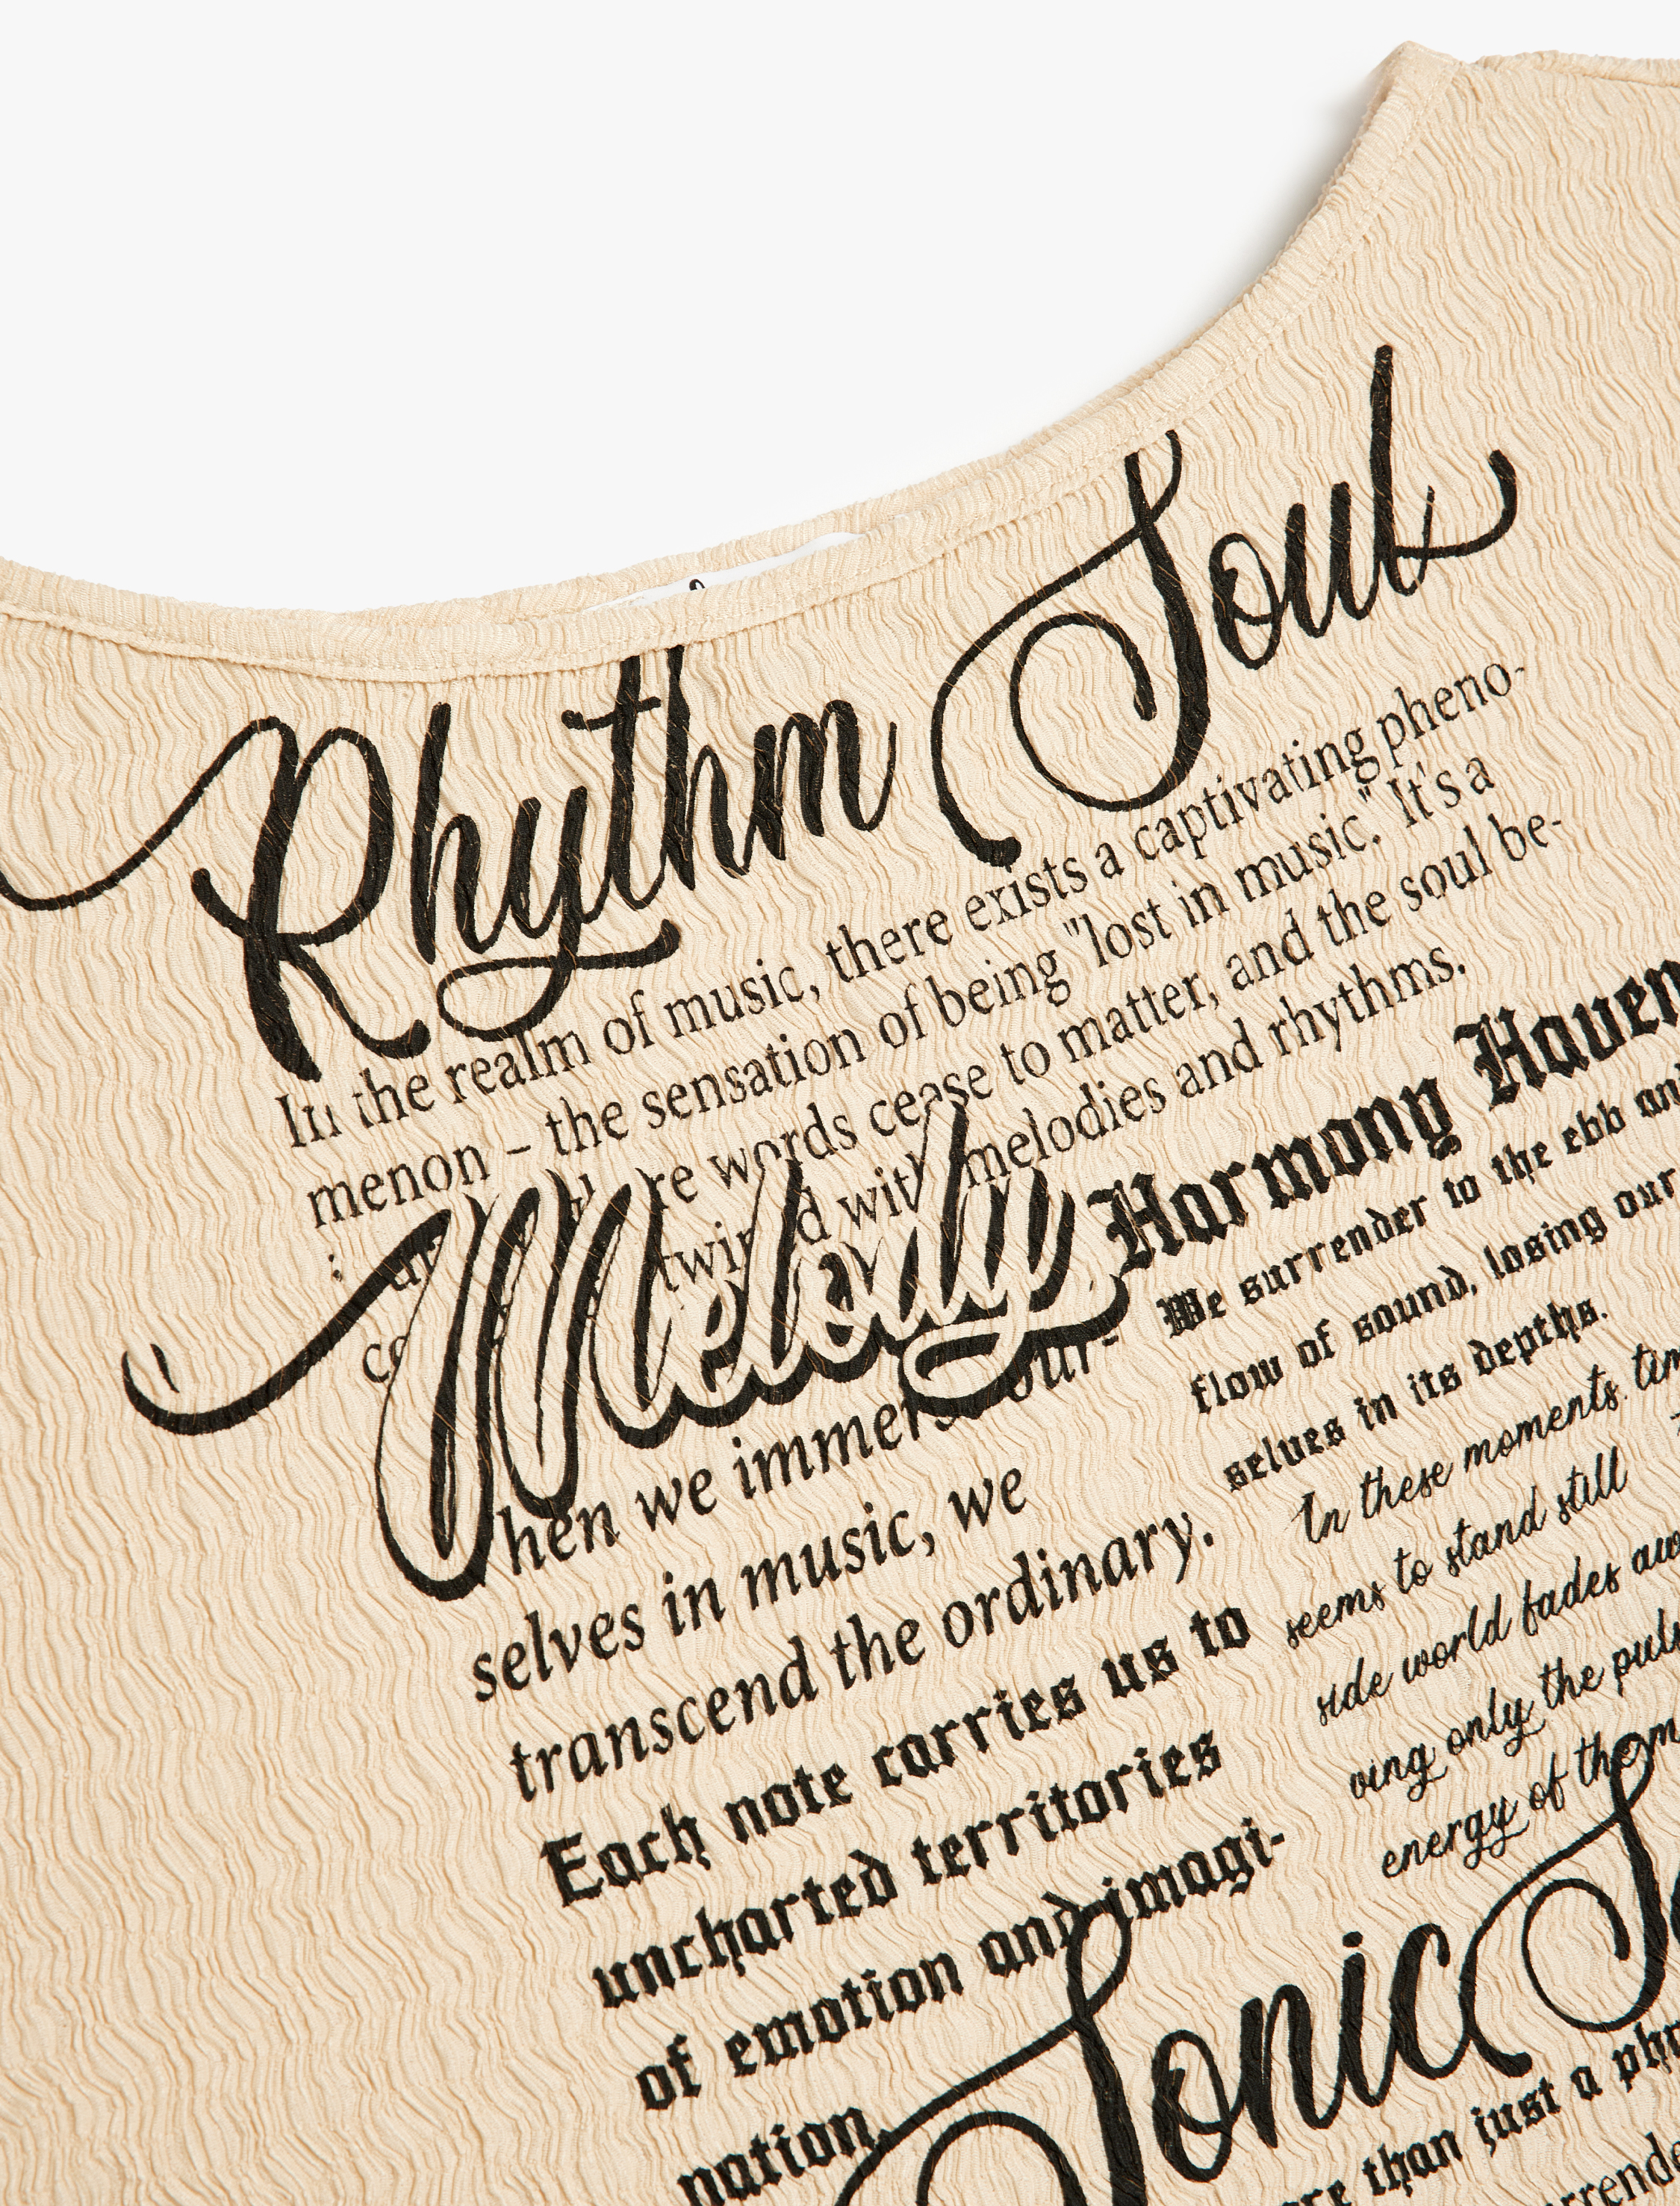 Rhythm Soul
In the realm of music, there exists a captivating pheno-
menon – the sensation of being "lost in music." It's a
words cease to matter, and the soul be-
with melodies and rhythms.
Melody
hen we immerse our-
selves in music, we
transcend the ordinary.
Each note carries us to
uncharted territories
of emotion and imagi-
nation.
Harmony Haven
We surrender to the ebb an
flow of sound, losing our
selves in its depths.
In these moments, tim
seems to stand still
side world fades aw
ving only the puls
energy of the m
Sonic S
re than just a phr
rrende